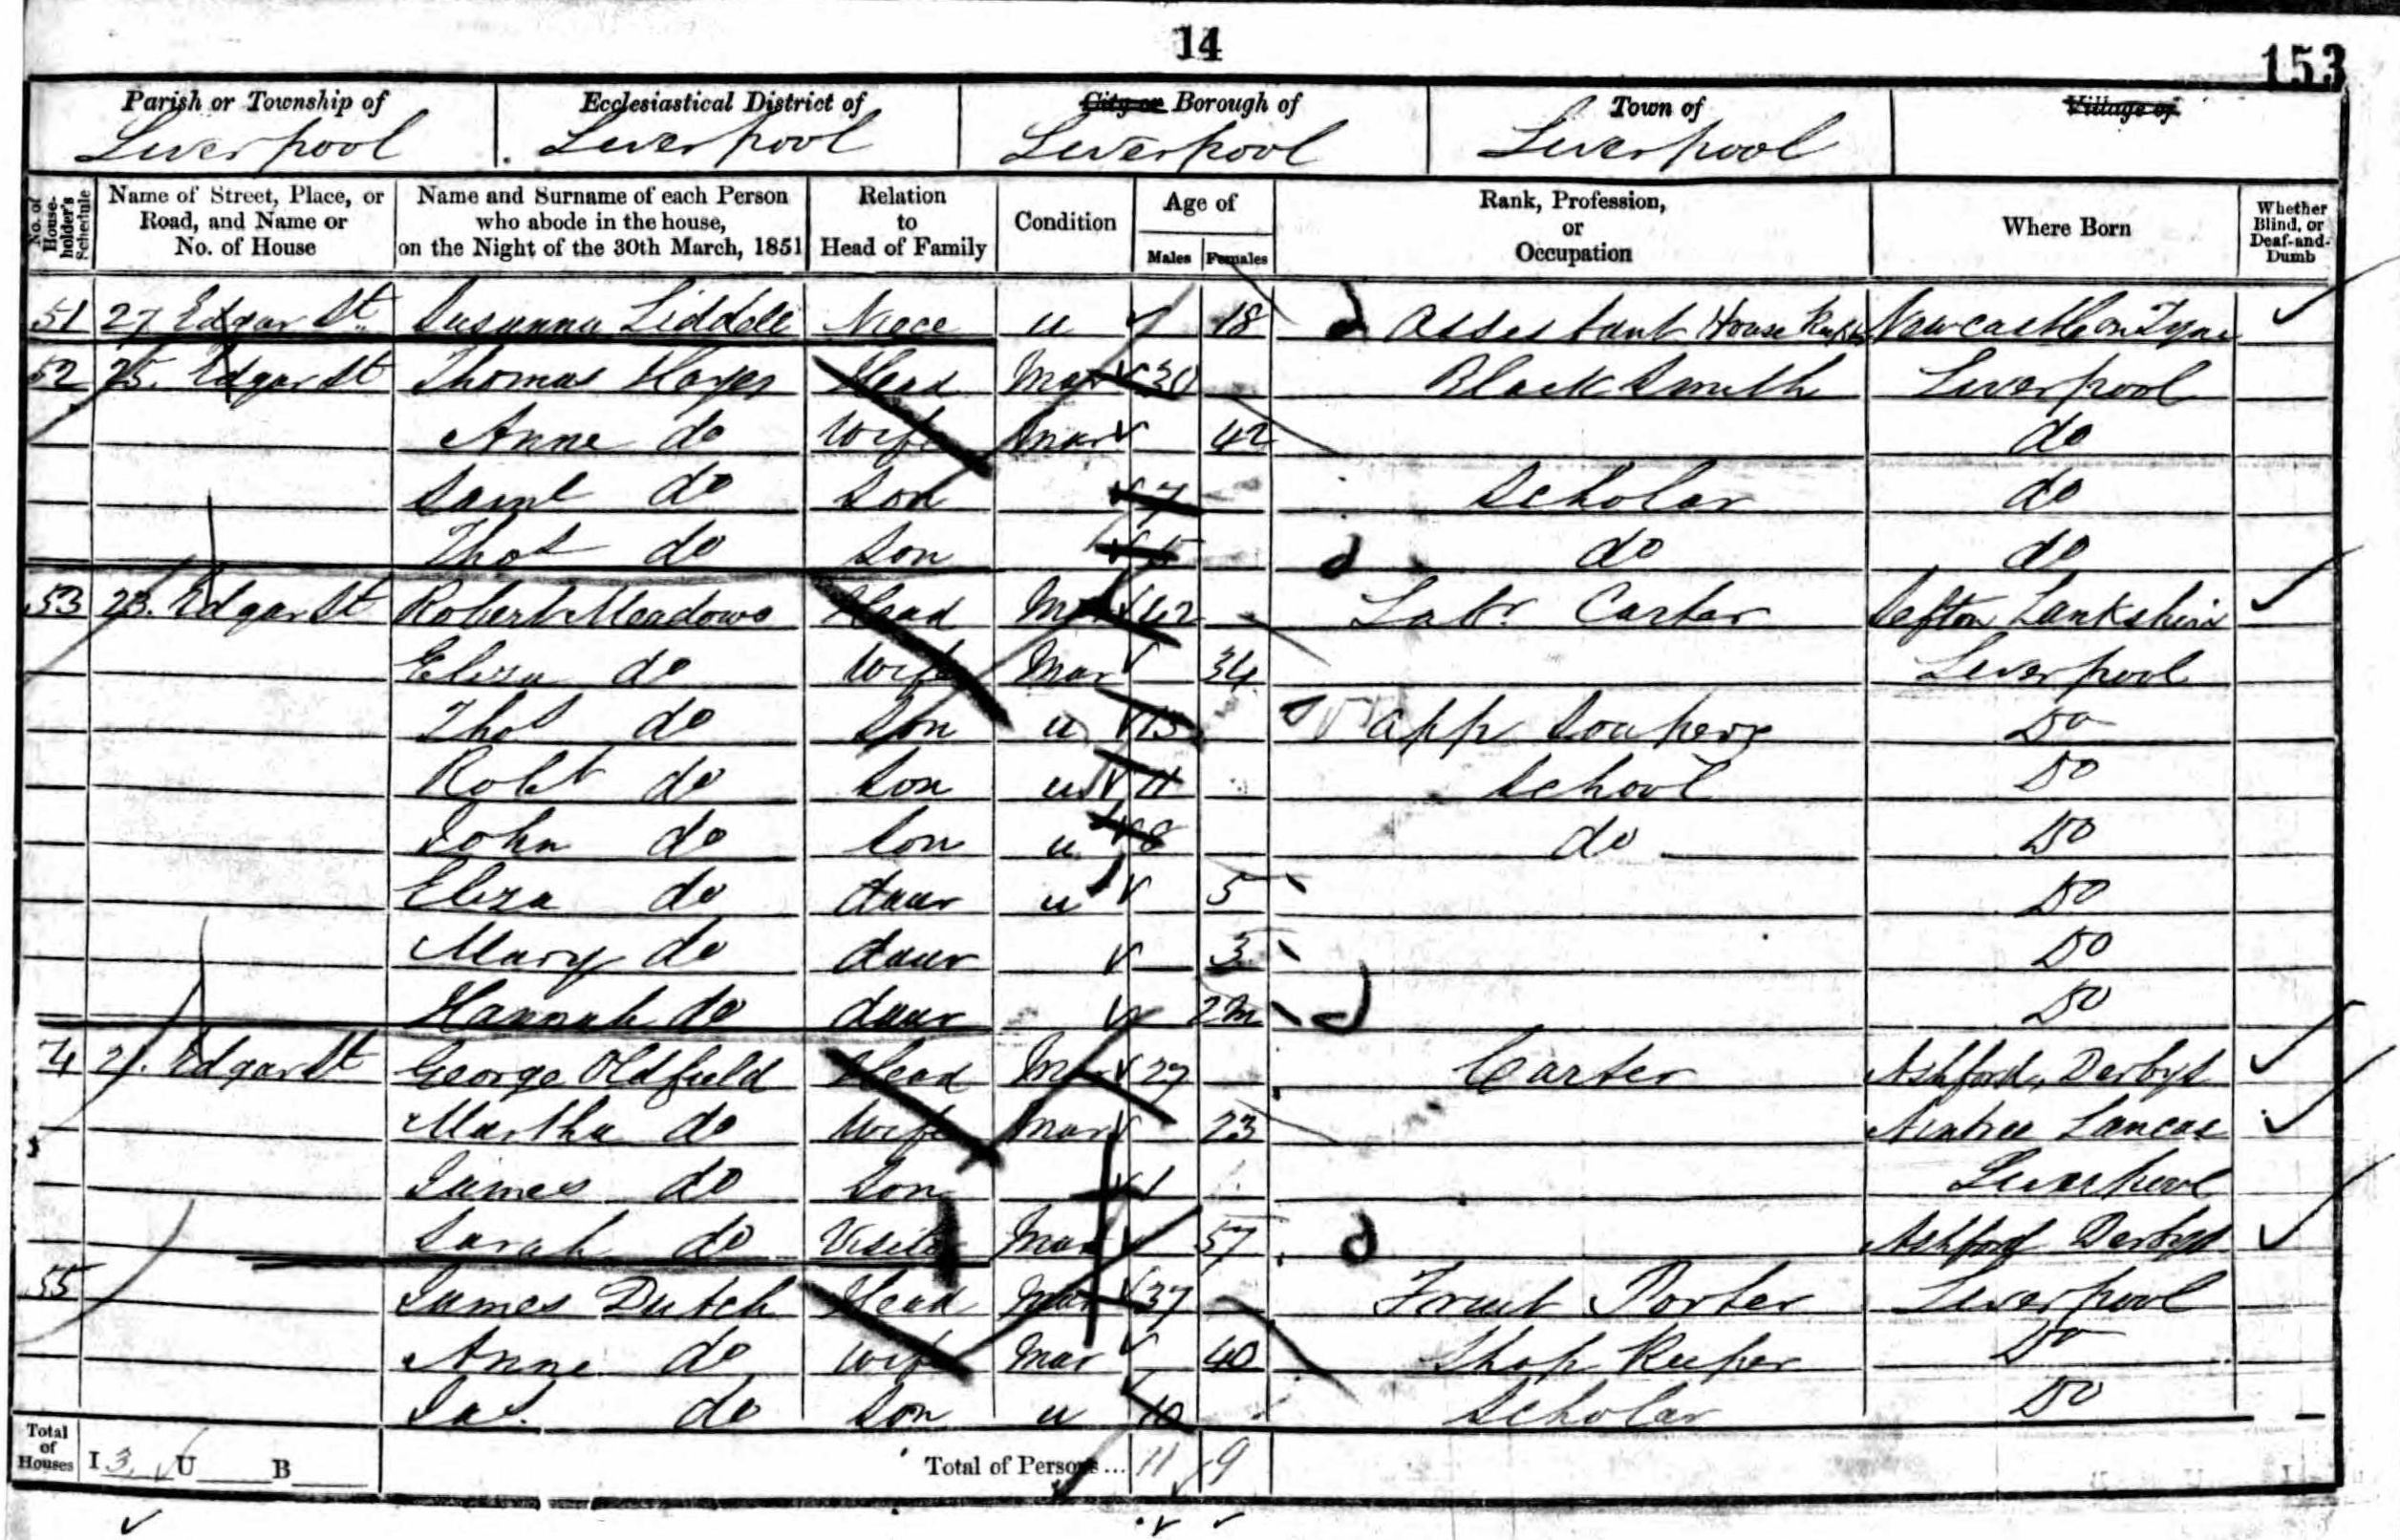 14
153
Parish or Township of Ecclesiastical District of City or Borough of Town of Village of
Liverpool Liverpool Liverpool Liverpool
No. of House-holder's Schedule Name of Street, Place, or Road, and Name or No. of House Name and Surname of each Person who abode in the house, on the Night of the 30th March, 1851 Relation to Head of Family Condition Age of Males Females Rank, Profession, or Occupation Where Born Whether Blind, or Deaf-and-Dumb
51 27 Edgar St Susanna Liddell Niece u 18 Assistant House Newcastle on Tyne
52 25. Edgar St Thomas Hayes Head Mar 30 Black Smith Liverpool
Anne do Wife Mar 42 do
Saml do Son 7 Scholar do
Thos do Son 5 do do
53 23. Edgar St Robert Meadows Head Mar 42 Labr. Carter Sefton Lankshire
Eliza do Wife Mar 34 Liverpool
Thos do Son u 15 app Do
Robt do Son u 11 School Do
John do Son u 8 do Do
Eliza do daur u 5 Do
Mary do daur 3 Do
Hannah do daur 2m Do
54 21. Edgar St George Oldfield Head Mar 27 Carter Ashford, Derbys
Martha do Wife Mar 23 Aintree Lancas
James do Son 1 Liverpool
Sarah do Visitor Mar 57 Ashford Derbys
55 James Dutch Head Mar 37 Fruit Porter Liverpool
Anne do Wife Mar 40 Shop Keeper Do
Jas. do Son u 10 Scholar Do
Total of Houses I 3 U B Total of Persons... 11 9